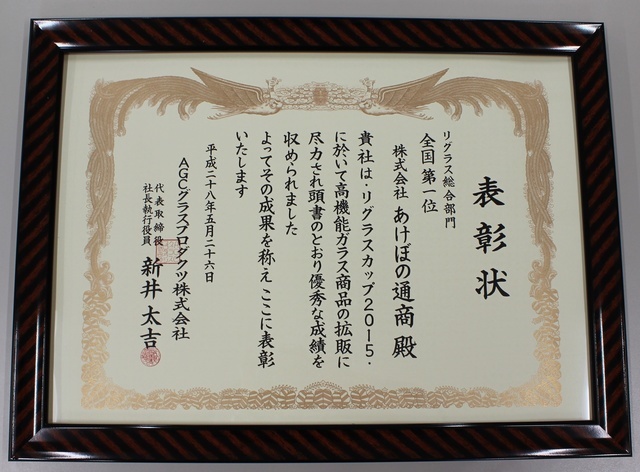 表彰状
リグラス総合部門
全国第一位
株式会社 あけぼの通商 殿
貴社は・リグラスカップ2015・
に於いて高機能ガラス商品の拡販に
尽力され頭書のとおり優秀な成績を
収められました
よってその成果を称え ここに表彰
いたします
平成二十八年五月二十六日
AGCグラスプロダクツ株式会社
代表取締役
社長執行役員
新井 太吉